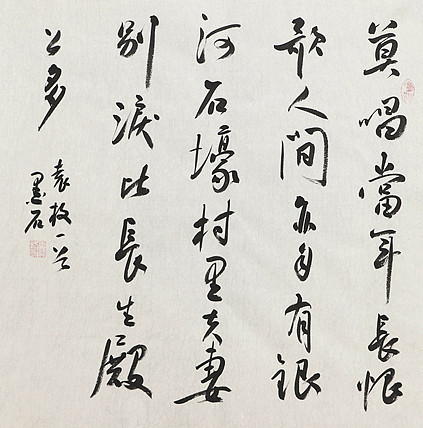 莫唱當年長恨
歌人間亦自有銀
河石壕村里夫妻
別淚比長生殿
上多
袁枚一首
墨石